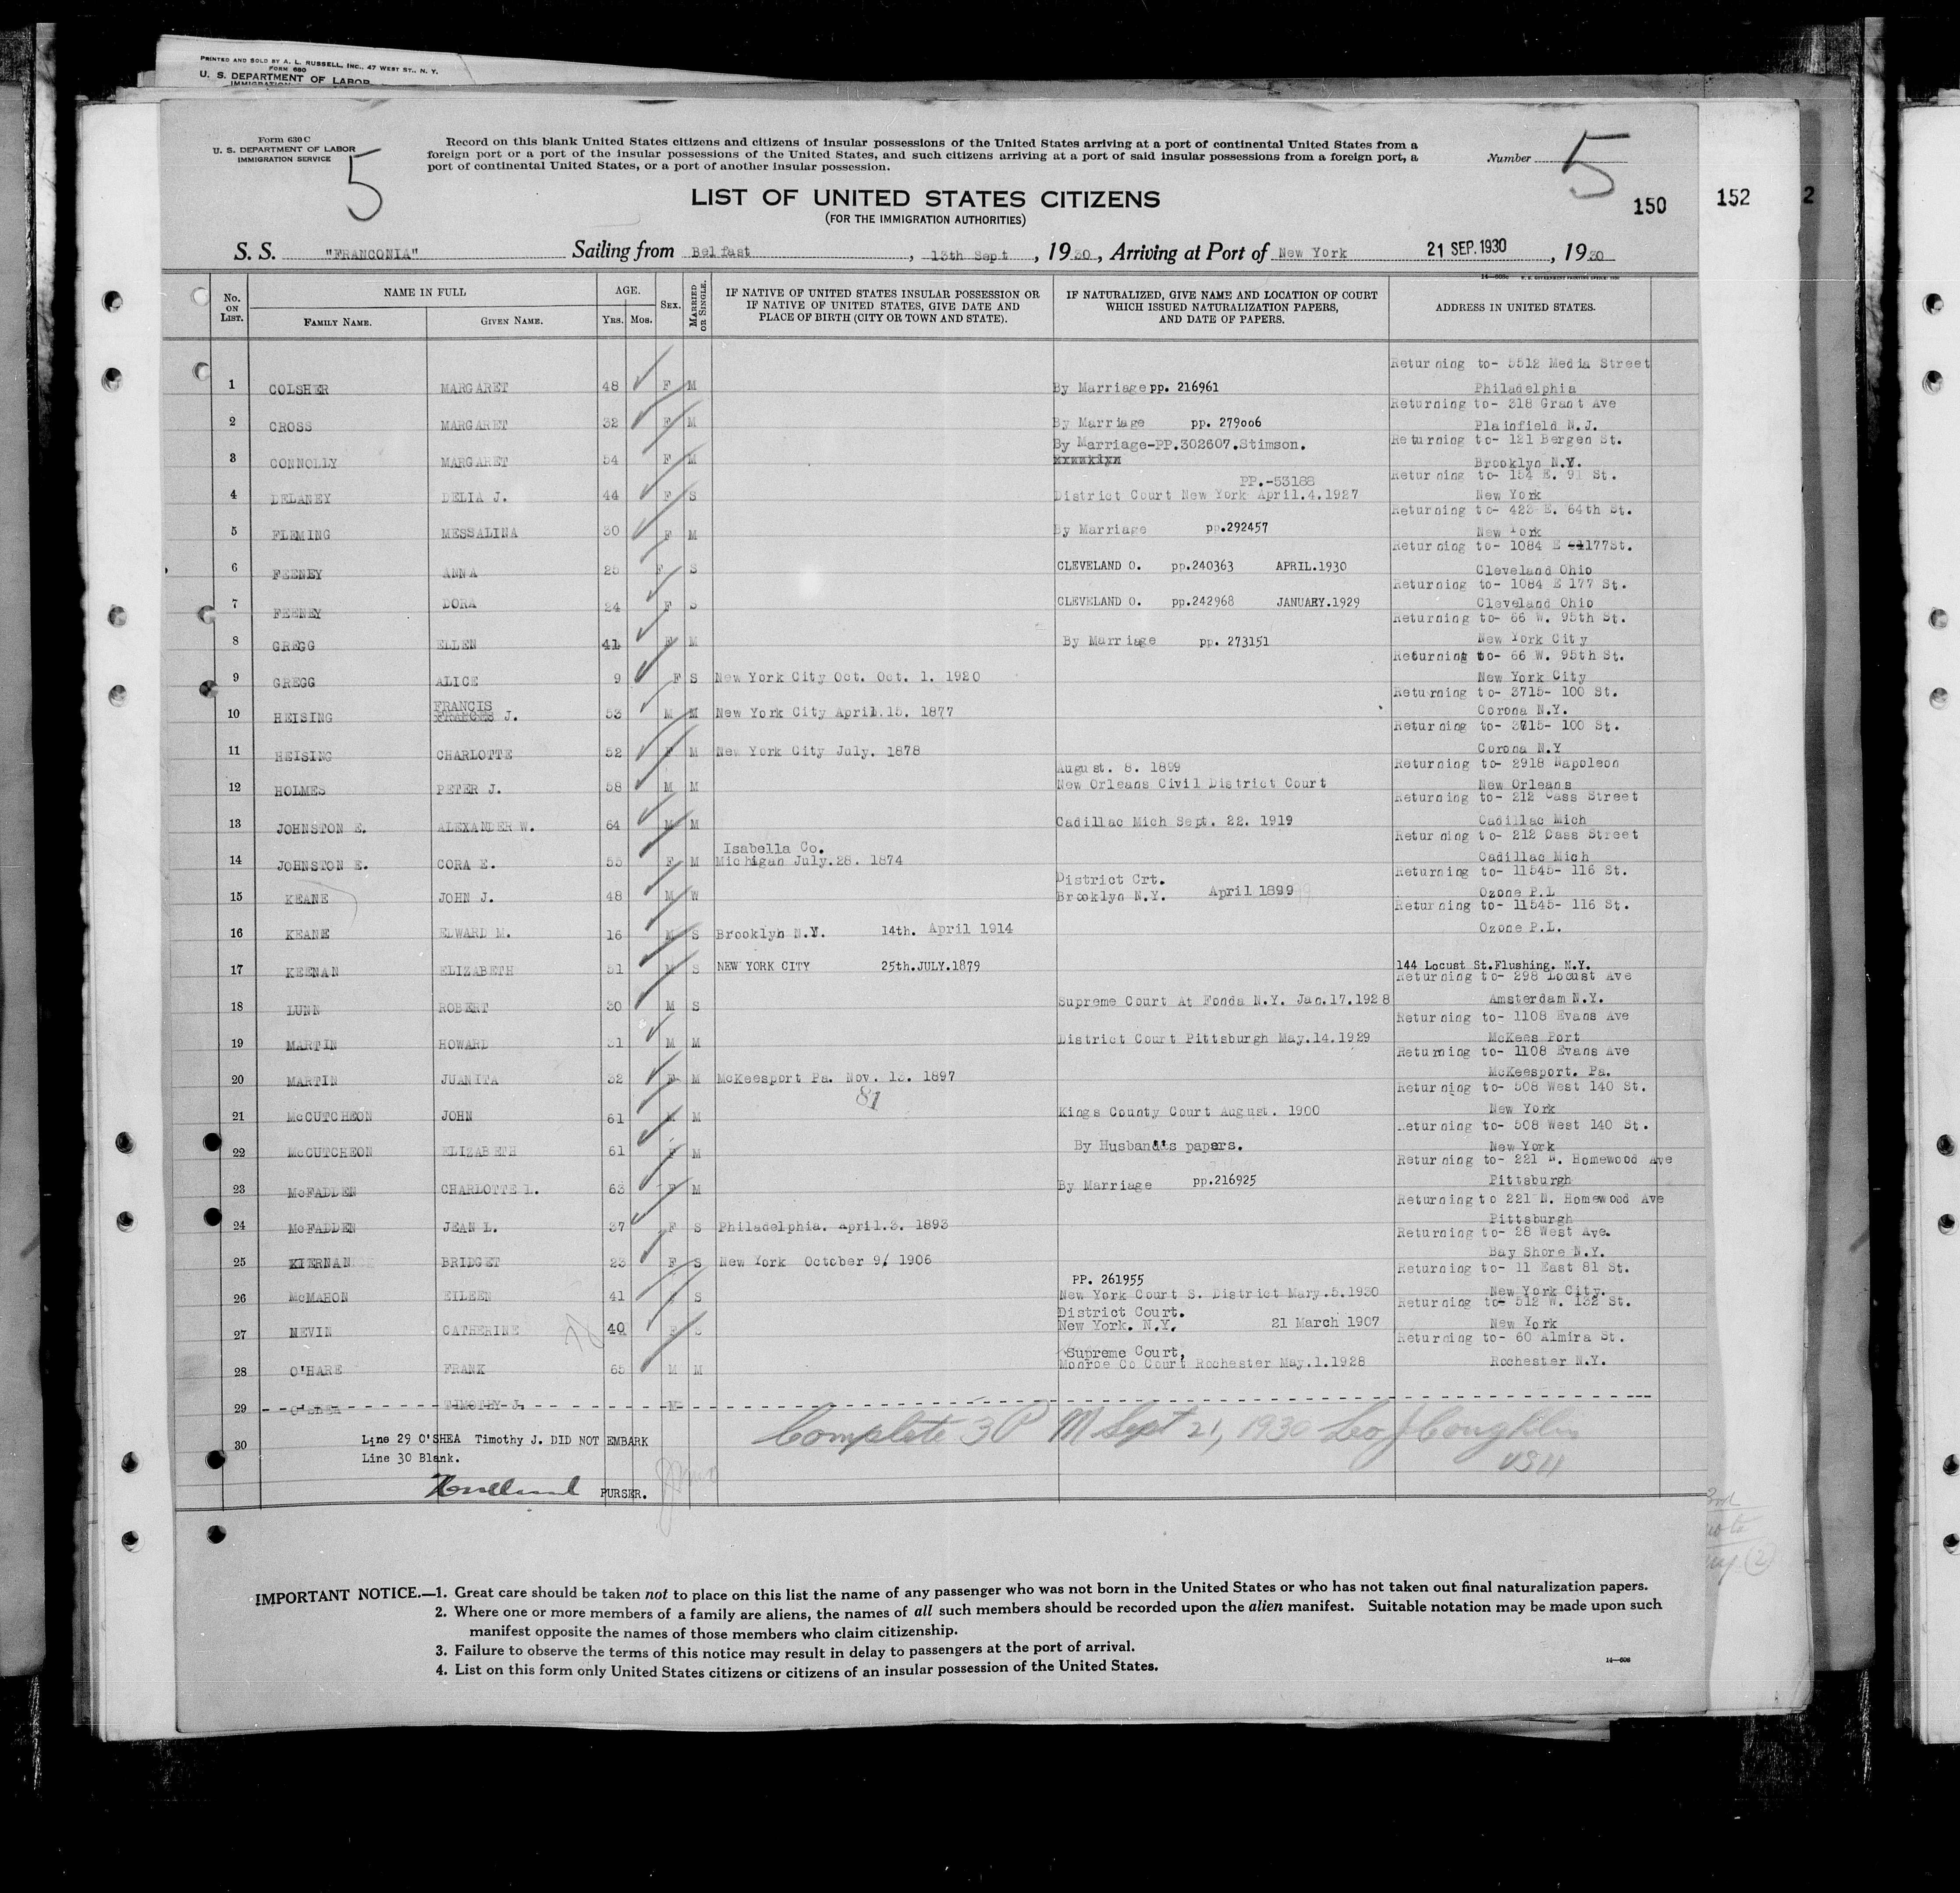 PRINTED AND SOLD BY A. L. RUSSELL, INC., 47 WEST ST., N. Y.
FORM 680
U. S. DEPARTMENT OF LABOR
Form 630 C
U. S. DEPARTMENT OF LABOR
IMMIGRATION SERVICE
5
Record on this blank United States citizens and citizens of insular possessions of the United States arriving at a port of continental United States from a
foreign port or a port of the insular possessions of the United States, and such citizens arriving at a port of said insular possessions from a foreign port, a
port of continental United States, or a port of another insular possession.
Number 5
LIST OF UNITED STATES CITIZENS
(FOR THE IMMIGRATION AUTHORITIES)
150 152 2
S. S. "FRANCONIA" Sailing from Belfast, 13th Sept, 1930, Arriving at Port of New York 21 SEP. 1930, 1930
No. ON LIST. NAME IN FULL FAMILY NAME. GIVEN NAME. AGE. YRS. MOS. SEX. MARRIED OR SINGLE.
IF NATIVE OF UNITED STATES INSULAR POSSESSION OR IF NATIVE OF UNITED STATES, GIVE DATE AND PLACE OF BIRTH (CITY OR TOWN AND STATE).
IF NATURALIZED, GIVE NAME AND LOCATION OF COURT WHICH ISSUED NATURALIZATION PAPERS, AND DATE OF PAPERS.
ADDRESS IN UNITED STATES.
1 COLSHER MARGARET 48 F M By Marriage pp. 216961 Returning to- 5512 Media Street Philadelphia
2 CROSS MARGARET 32 F M By Marriage pp. 279006 Returning to- 318 Grant Ave Plainfield N.J.
3 CONNOLLY MARGARET 54 F M By Marriage-PP.302607.Stimson. Returning to- 121 Bergen St. Brooklyn N.Y.
4 DELANEY DELIA J. 44 F S PP.-53188 District Court New York April.4.1927 Returning to- 154 E. 91 St. New York
5 FLEMING MESSALINA 30 F M By Marriage pp.292457 Returning to- 423 E. 64th St. New York
6 FEENEY ANNA 25 F S CLEVELAND O. pp.240363 APRIL.1930 Returning to- 1084 E 177St. Cleveland Ohio
7 FEENEY DORA 24 F S CLEVELAND O. pp.242968 JANUARY.1929 Returning to- 1084 E 177 St. Cleveland Ohio
8 GREGG ELLEN 41 F M By Marriage pp. 273151 Returning to- 66 W. 95th St. New York City
9 GREGG ALICE 9 F S New York City Oct. Oct. 1. 1920 Returning to- 66 W. 95th St. New York City
10 HEISING FRANCIS FRANCES J. 53 M M New York City April.15. 1877 Returning to- 3715- 100 St. Corona N.Y.
11 HEISING CHARLOTTE 52 F M New York City July. 1878 Returning to- 3715- 100 St. Corona N.Y
12 HOLMES PETER J. 58 M M August. 8. 1899 New Orleans Civil District Court Returning to- 2918 Napoleon New Orleans
13 JOHNSTON E. ALEXANDER W. 64 M M Cadillac Mich Sept. 22. 1919 Returning to- 212 Cass Street Cadillac Mich
14 JOHNSTON E. CORA E. 55 F M Isabella Co. Michigan July.28. 1874 Returning to- 212 Cass Street Cadillac Mich
15 KEANE JOHN J. 48 M W District Crt. Brooklyn N.Y. April 1899 Returning to- 11545- 116 St. Ozone P.L
16 KEANE EDWARD M. 16 M S Brooklyn N.Y. 14th. April 1914 Returning to- 11545- 116 St. Ozone P.L.
17 KEENAN ELIZABETH 51 M S NEW YORK CITY 25th.JULY.1879 144 Locust St.Flushing. N.Y.
18 LUNN ROBERT 30 M S Supreme Court At Fonda N.Y. Jan.17.1928 Returning to- 298 Locust Ave Amsterdam N.Y.
19 MARTIN HOWARD 31 M M District Court Pittsburgh May.14.1929 Returning to- 1108 Evans Ave McKees Port
20 MARTIN JUANITA 32 F M McKeesport Pa. Nov. 13. 1897 Returning to- 1108 Evans Ave McKeesport. Pa.
81
21 McCUTCHEON JOHN 61 M M Kings County Court August. 1900 Returning to- 508 West 140 St. New York
22 McCUTCHEON ELIZABETH 61 F M By Husband's papers. Returning to- 508 West 140 St. New York
23 McFADDEN CHARLOTTE L. 63 F M By Marriage pp.216925 Returning to- 221 N. Homewood Ave Pittsburgh
24 McFADDEN JEAN L. 37 F S Philadelphia. April.3. 1893 Returning to 221 N. Homewood Ave Pittsburgh
25 KIERNAN BRIDGET 23 F S New York October 9/ 1906 Returning to- 28 West Ave. Bay Shore N.Y.
26 McMAHON EILEEN 41 F S PP. 261955 New York Court S. District Mary.5.1930 Returning to- 11 East 81 St. New York City.
27 NEVIN CATHERINE 40 F S District Court. New York. N.Y. 21 March 1907 Returning to- 512 W. 132 St. New York
28 O'HARE FRANK 65 M M Supreme Court, Monroe Co Court Rochester May.1.1928 Returning to- 60 Almira St. Rochester N.Y.
29 O'SHEA TIMOTHY J. M
30 Line 29 O'SHEA Timothy J. DID NOT EMBARK
Line 30 Blank.
PURSER.
Complete 3 P M Sept 21, 1930 Leo J Coughlin
USII
IMPORTANT NOTICE.—1. Great care should be taken not to place on this list the name of any passenger who was not born in the United States or who has not taken out final naturalization papers.
2. Where one or more members of a family are aliens, the names of all such members should be recorded upon the alien manifest. Suitable notation may be made upon such
manifest opposite the names of those members who claim citizenship.
3. Failure to observe the terms of this notice may result in delay to passengers at the port of arrival.
4. List on this form only United States citizens or citizens of an insular possession of the United States.